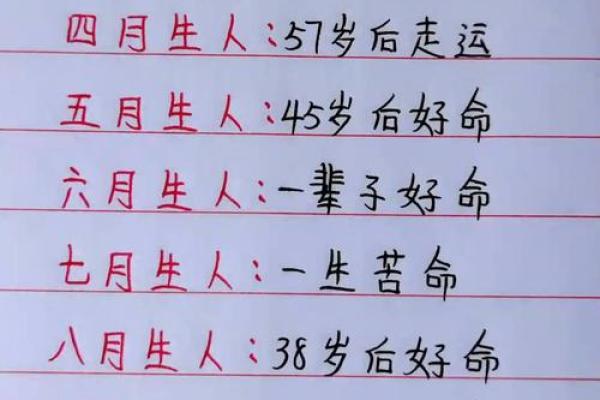 四月生人:57岁后走运
五月生人:45岁后好命
六月生人:一辈子好命
七月生人:一生苦命
八月生人:38岁后好命